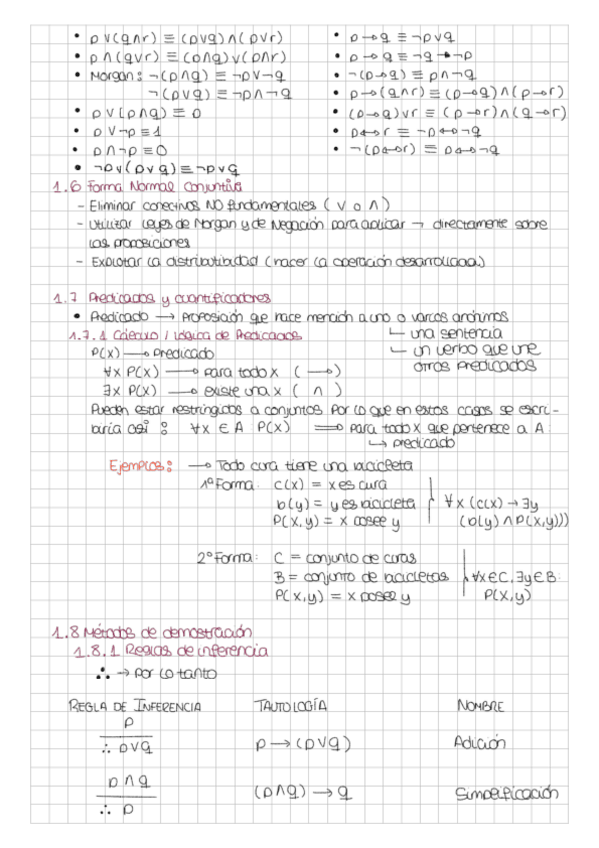 • p∨(q∧r) ≡ (p∨q)∧(p∨r)
• p∧(q∨r) ≡ (p∧q)∨(p∧r)
• Morgan: ¬(p∧q) ≡ ¬p∨¬q
¬(p∨q) ≡ ¬p∧¬q
• p∨(p∧q) ≡ p
• p∨¬p ≡ 1
• p∧¬p ≡ 0
• ¬p∨(p∨q) ≡ ¬p∨q
• p→q ≡ ¬p∨q
• p→q ≡ ¬q→¬p
• ¬(p→q) ≡ p∧¬q
• p→(q∧r) ≡ (p→q)∧(p→r)
• (p→q)∨r ≡ (p→r)∧(q→r)
• p↔r ≡ ¬p↔¬q
• ¬(p↔r) ≡ p↔¬q
1.6 Forma Normal Conjuntiva
- Eliminar conectivos NO fundamentales (∨ o ∧)
- Utilizar Leyes de Morgan y de Negación para aplicar ¬ directamente sobre
las proposiciones
- Explotar la distributibidad (hacer la operación desarrollada)
1.7 Predicados y cuantificadores
• Predicado → Proposición que hace mención a uno o varios anónimos
1.7.1 Cálculo / Lógica de Predicados
una sentencia
un verbo que une
otros predicados
P(x) → Predicado
∀x P(x) → para todo x (→)
∃x P(x) → existe una x (∧)
Pueden estar restringidos a conjuntos por lo que en estos casos se escri-
biría así: ∀x ∈ A P(x) ⟹ para todo x que pertenece a A:
↳ predicado
Ejemplos: → Todo cura tiene una bicicleta
1º Forma: c(x) = x es cura
b(y) = y es bicicleta
P(x,y) = x posee y
∀x (c(x) → ∃y
(b(y) ∧ P(x,y)))
2º Forma: C = conjunto de curas
B = conjunto de bicicletas
P(x,y) = x posee y
∀x∈C, ∃y∈B:
P(x,y)
1.8 Métodos de demostración
1.8.1 Reglas de inferencia
∴ → por lo tanto
REGLA DE INFERENCIA TAUTOLOGÍA NOMBRE
p
∴ p∨q p → (p∨q) Adición
p∧q
∴ p (p∧q) → q Simplificación